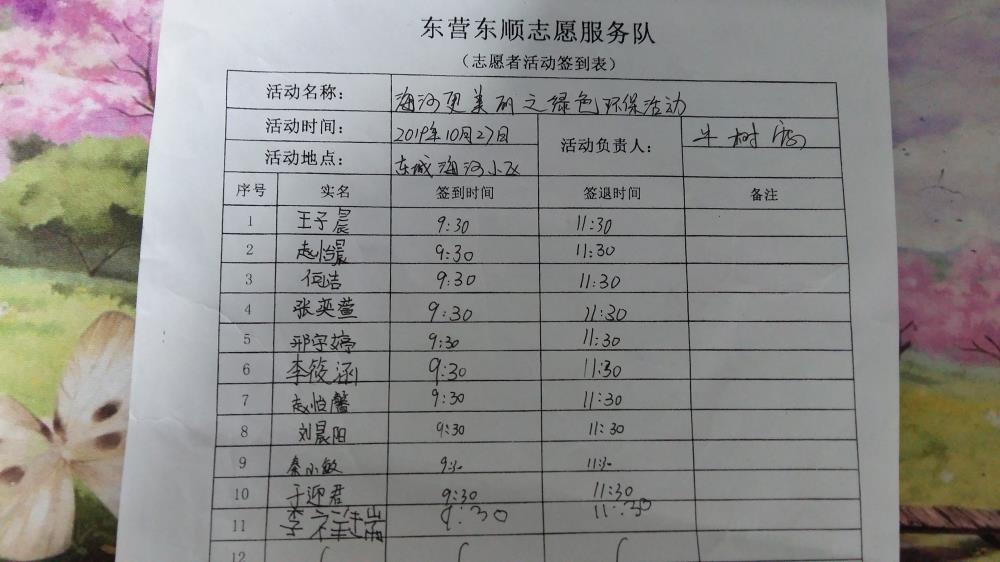 东营东顺志愿服务队
（志愿者活动签到表）
活动名称： 海河更美丽之绿色环保活动
活动时间： 2019年10月27日 活动负责人： 牛树
活动地点： 东城海河小区
序号 实名 签到时间 签退时间 备注
1 王子晨 9:30 11:30
2 赵怡晨 9:30 11:30
3 何洁 9:30 11:30
4 张奕萱 9:30 11:30
5 邢宇婷 9:30 11:30
6 李筱涵 9:30 11:30
7 赵怡馨 9:30 11:30
8 刘晨阳 9:30 11:30
9 秦小敏 9:30 11:30
10 于迎君 9:30 11:30
11 李祥瑞 9:30 11:30
12